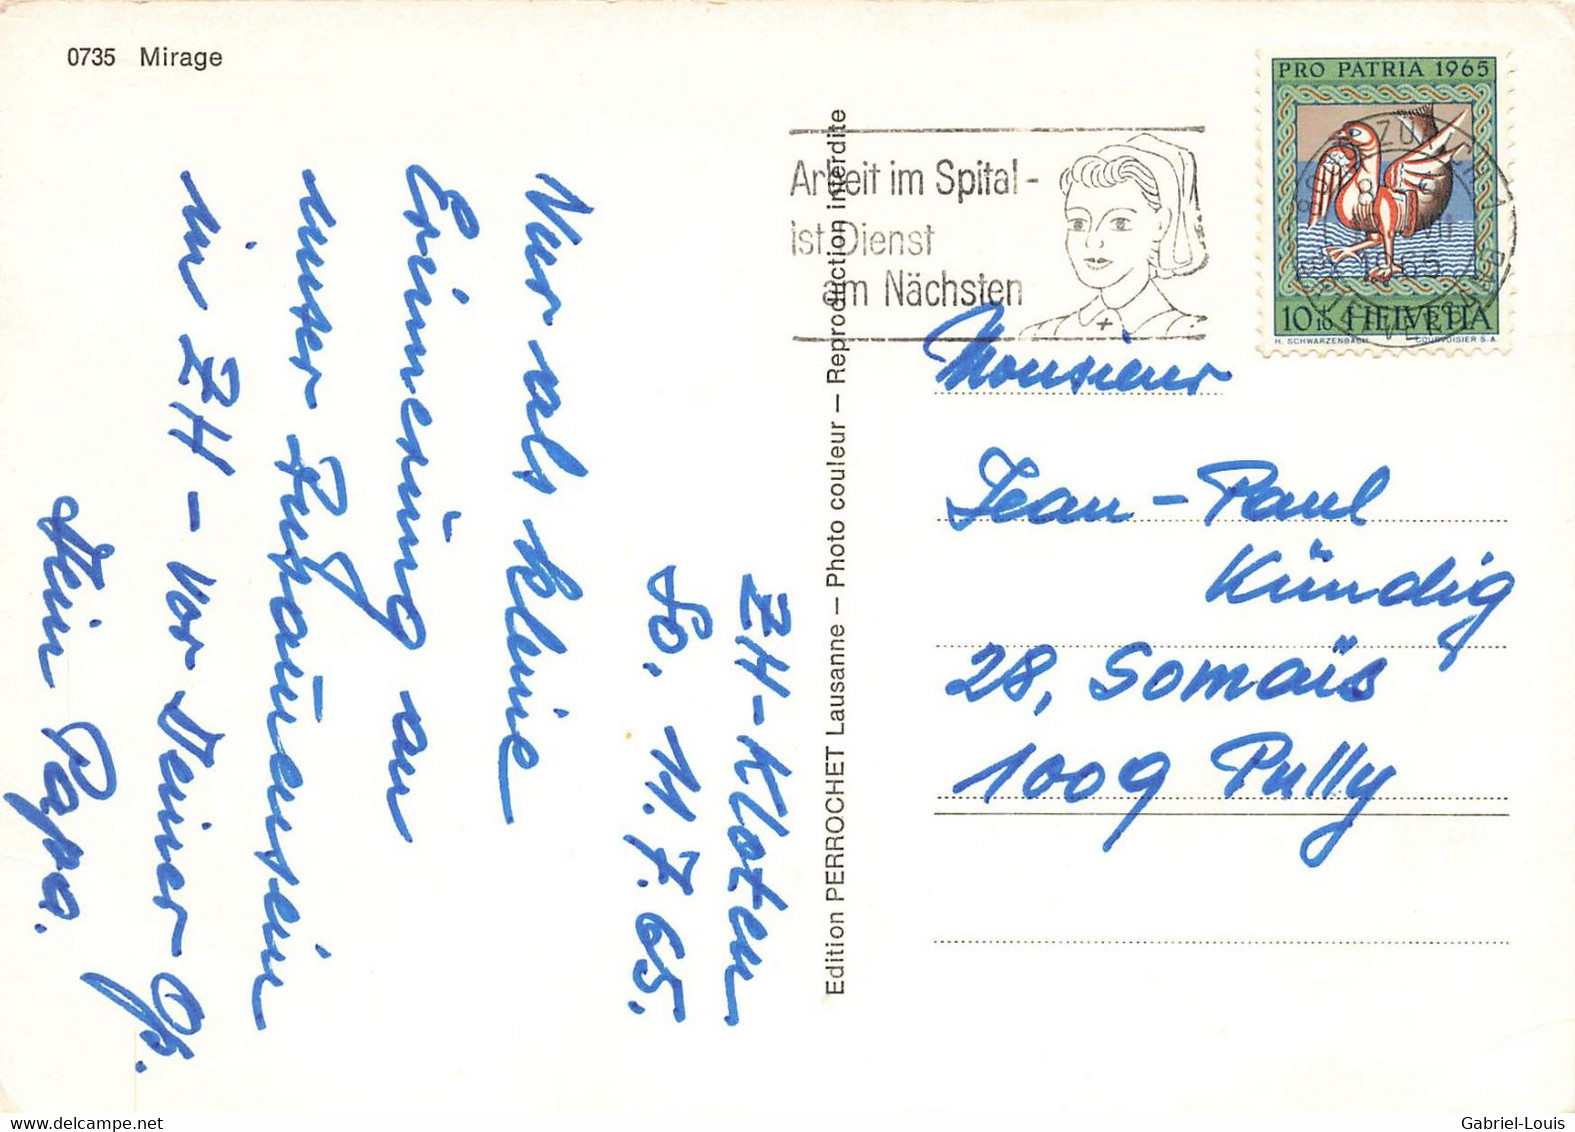 0735 Mirage
PRO PATRIA 1965
Arbeit im Spital -
ist Dienst
am Nächsten
10+10 HELVETIA
H. SCHWARZENBACH COURVOISIER S.A.
Edition PERROCHET Lausanne – Photo couleur – Reproduction interdite
ZH-Kloten
So, 11.7.65.
Nur als kleine
Erinnerung an
unser Zusammensein
in ZH - vor Deiner Op.
Dein Papa.
Monsieur
Jean-Paul
Kündig
28, Somaïs
1009 Pully
www.delcampe.net
Gabriel-Louis